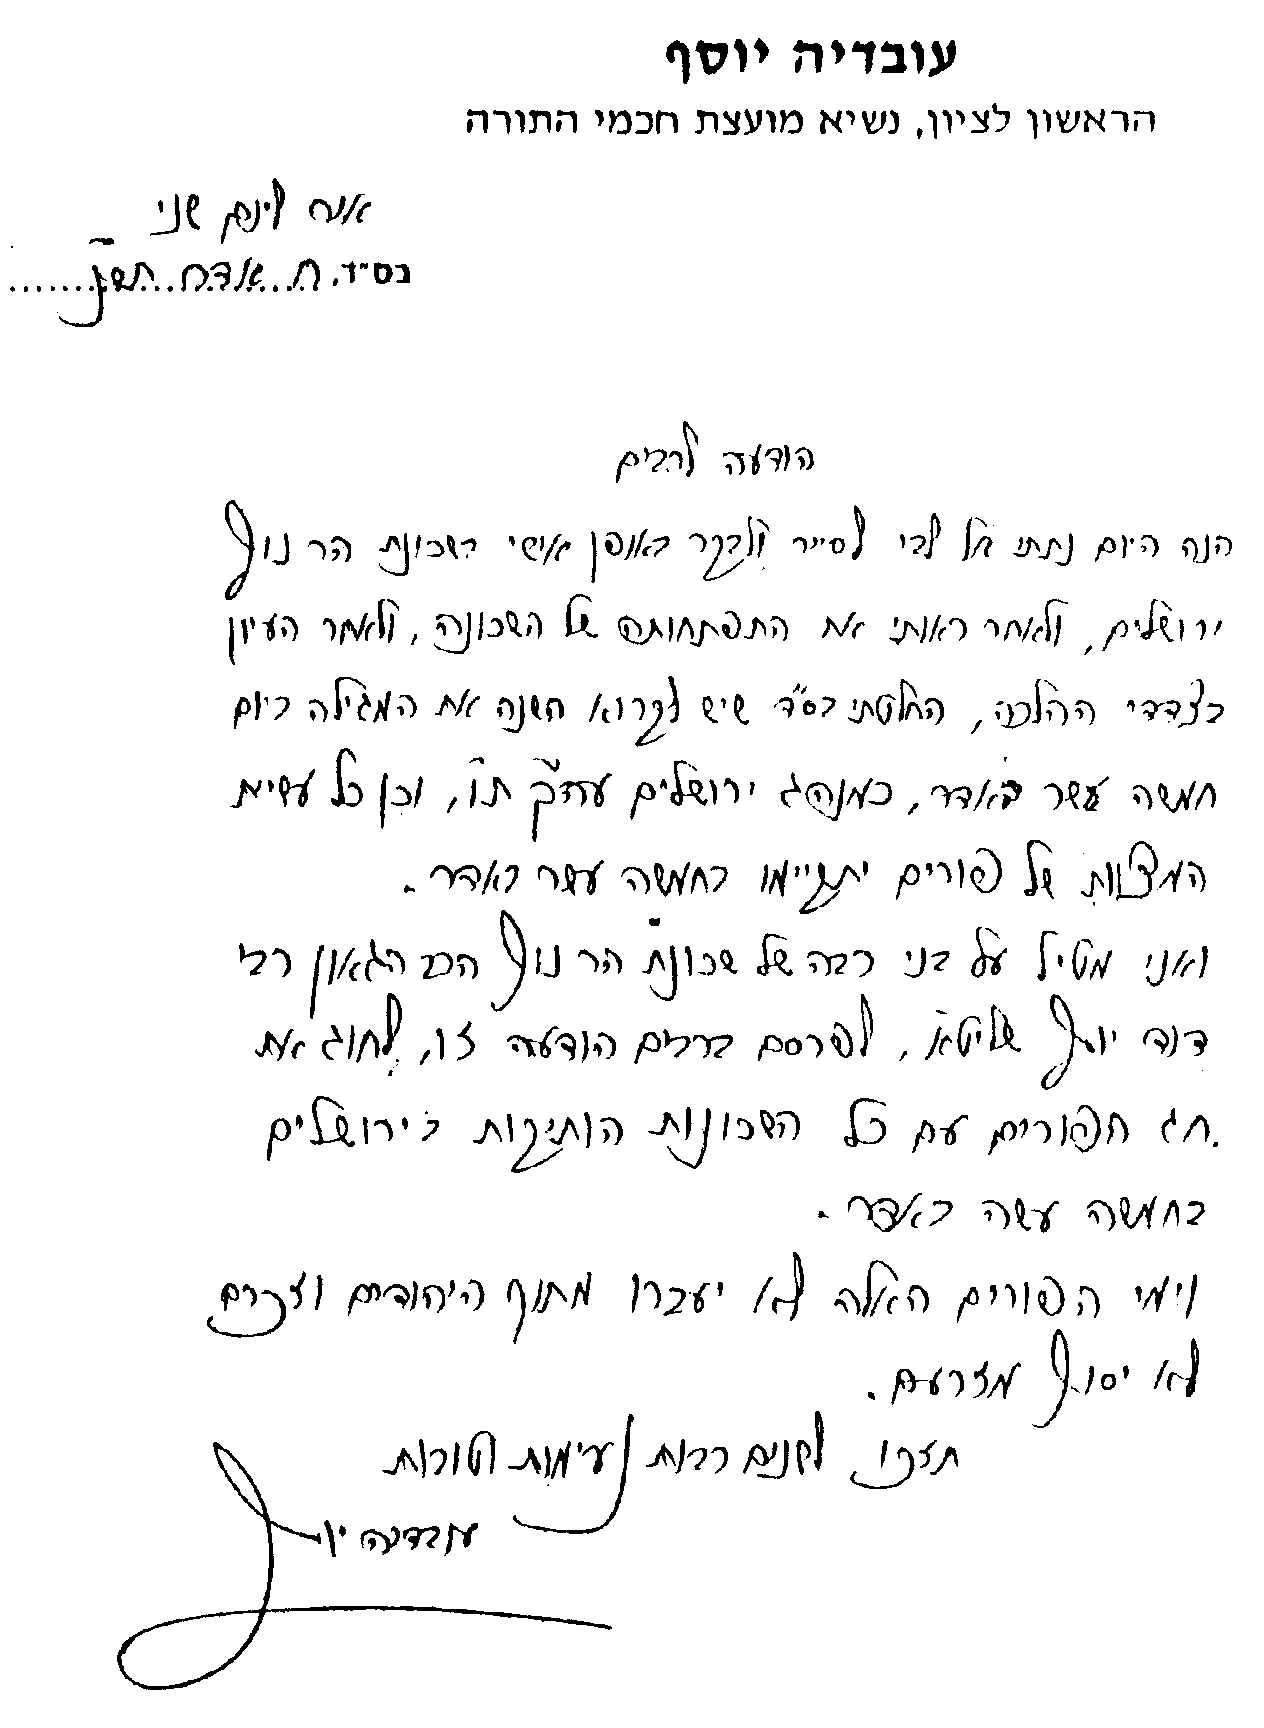 עובדיה יוסף
הראשון לציון, נשיא מועצת חכמי התורה
אור ליום שני
בס"ד. ח אדר תש"נ
הודעה לרבים
הנה היום נתתי אל לבי לסייר ולבקר באופן אישי בשכונת הר נוף
ירושלים, ולאחר ראותי את התפתחותה של השכונה, ולאחר העיון
בצדדי ההלכה, החלטתי בס"ד שיש לקרוא השנה את המגילה ביום
חמשה עשר באדר, כמנהג ירושלים עיה"ק ת"ו, וכן כל עשיית
המצוות של פורים יתקיימו בחמשה עשר באדר.
ואני מטיל על בני רבה של שכונת הר נוף הרב הגאון רבי
דוד יוסף שליט"א, לפרסם ברבים הודעה זו, לחוג את
חג הפורים עם כל השכונות הותיקות בירושלים
בחמשה עשר באדר.
וימי הפורים האלה לא יעברו מתוך היהודים וזכרם
לא יסוף מזרעם.
תזכו לשנים רבות נעימות וטובות
עובדיה יוסף